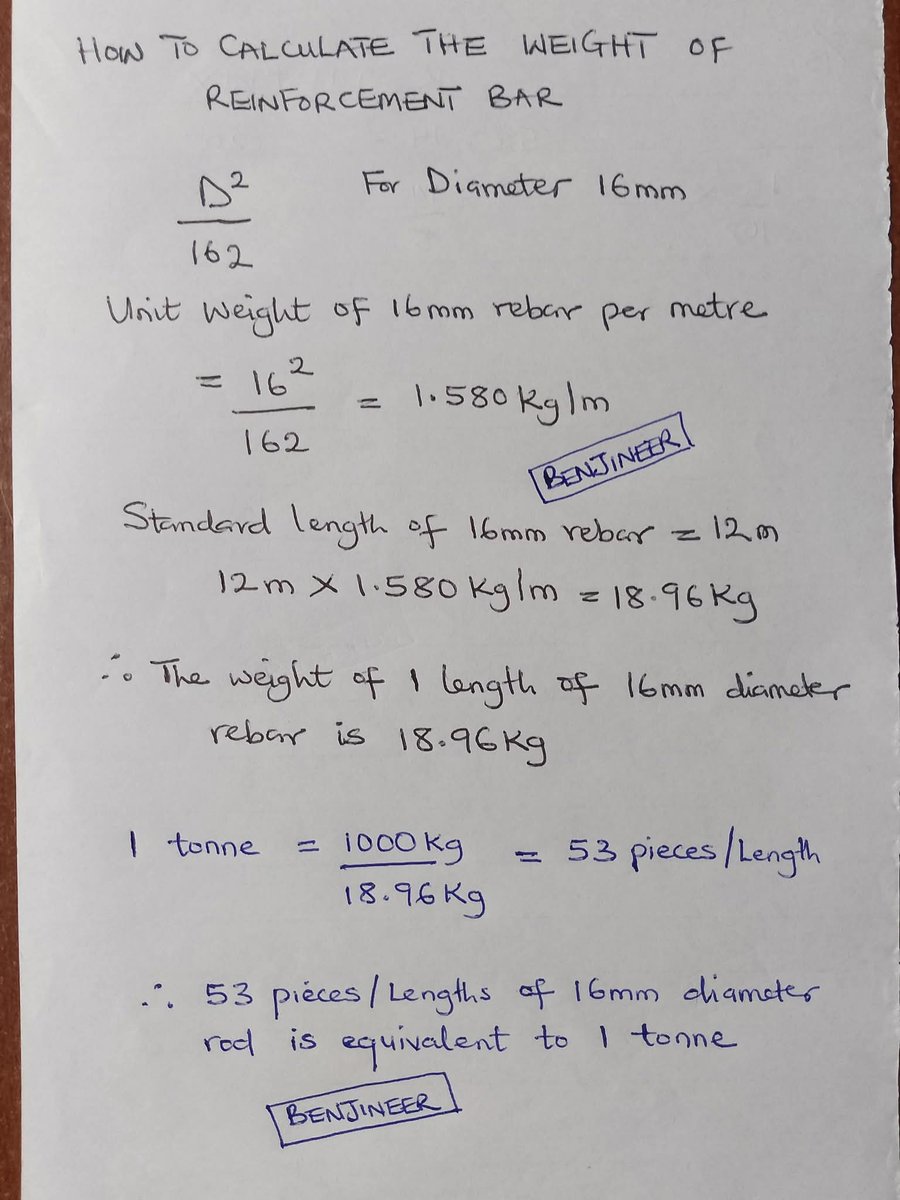 HOW TO CALCULATE THE WEIGHT OF
REINFORCEMENT BAR
D²
162
For Diameter 16mm
Unit weight of 16mm rebar per metre
= 16²
162
= 1.580 Kg/m
BENJINEER
Standard length of 16mm rebar = 12m
12m x 1.580 Kg/m = 18.96 Kg
∴ The weight of 1 length of 16mm diameter
rebar is 18.96Kg
1 tonne = 1000 Kg
18.96 Kg
= 53 pieces/Length
∴ 53 pieces/Lengths of 16mm diameter
rod is equivalent to 1 tonne
BENJINEER